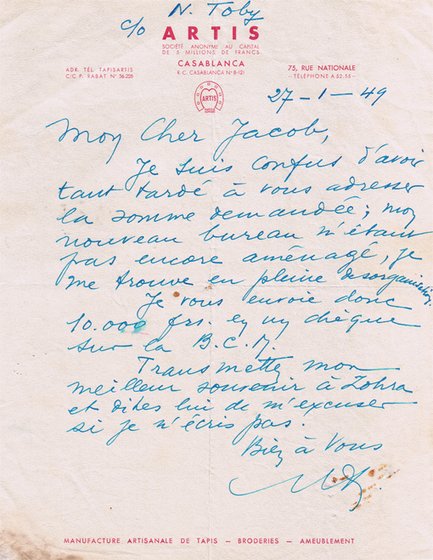 N. Toby
c/o ARTIS
SOCIÉTÉ ANONYME AU CAPITAL
DE 5 MILLIONS DE FRANCS
CASABLANCA
R.C. CASABLANCA N° B-121
ADR. TÉL. TAPISARTIS
C/C P. RABAT N° 36-226
75, RUE NATIONALE
TÉLÉPHONE A 52-55
ARTIS
27-1-49
Mon Cher Jacob,
Je suis confus d'avoir
tant tardé à vous adresser
la somme demandée; mon
nouveau bureau n'étant
pas encore aménagé, je
me trouve en pleine désorganisation.
Je vous envoie donc
10.000 frs. en un chèque
sur la B.C.M.
Transmettez mon
meilleur souvenir à Zohra
et dites lui de m'excuser
si je n'écris pas.
Bien à Vous
MANUFACTURE ARTISANALE DE TAPIS — BRODERIES — AMEUBLEMENT